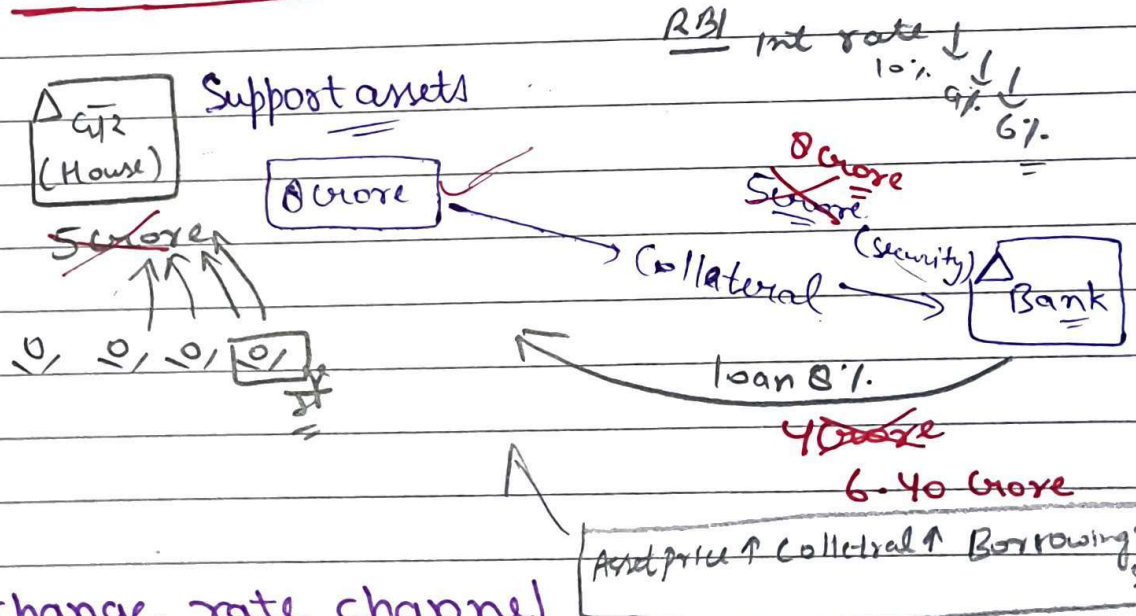 RBI int rate ↓
10% ↓ ↓
9%
6%
Support assets
(House)
8 Crore
8 Crore
5 Crore
5 Crore
Collateral
(security)
Bank
loan 8%
4 Crore
6.40 Crore
Asset price ↑ Colletral ↑ Borrowing
change rate channel